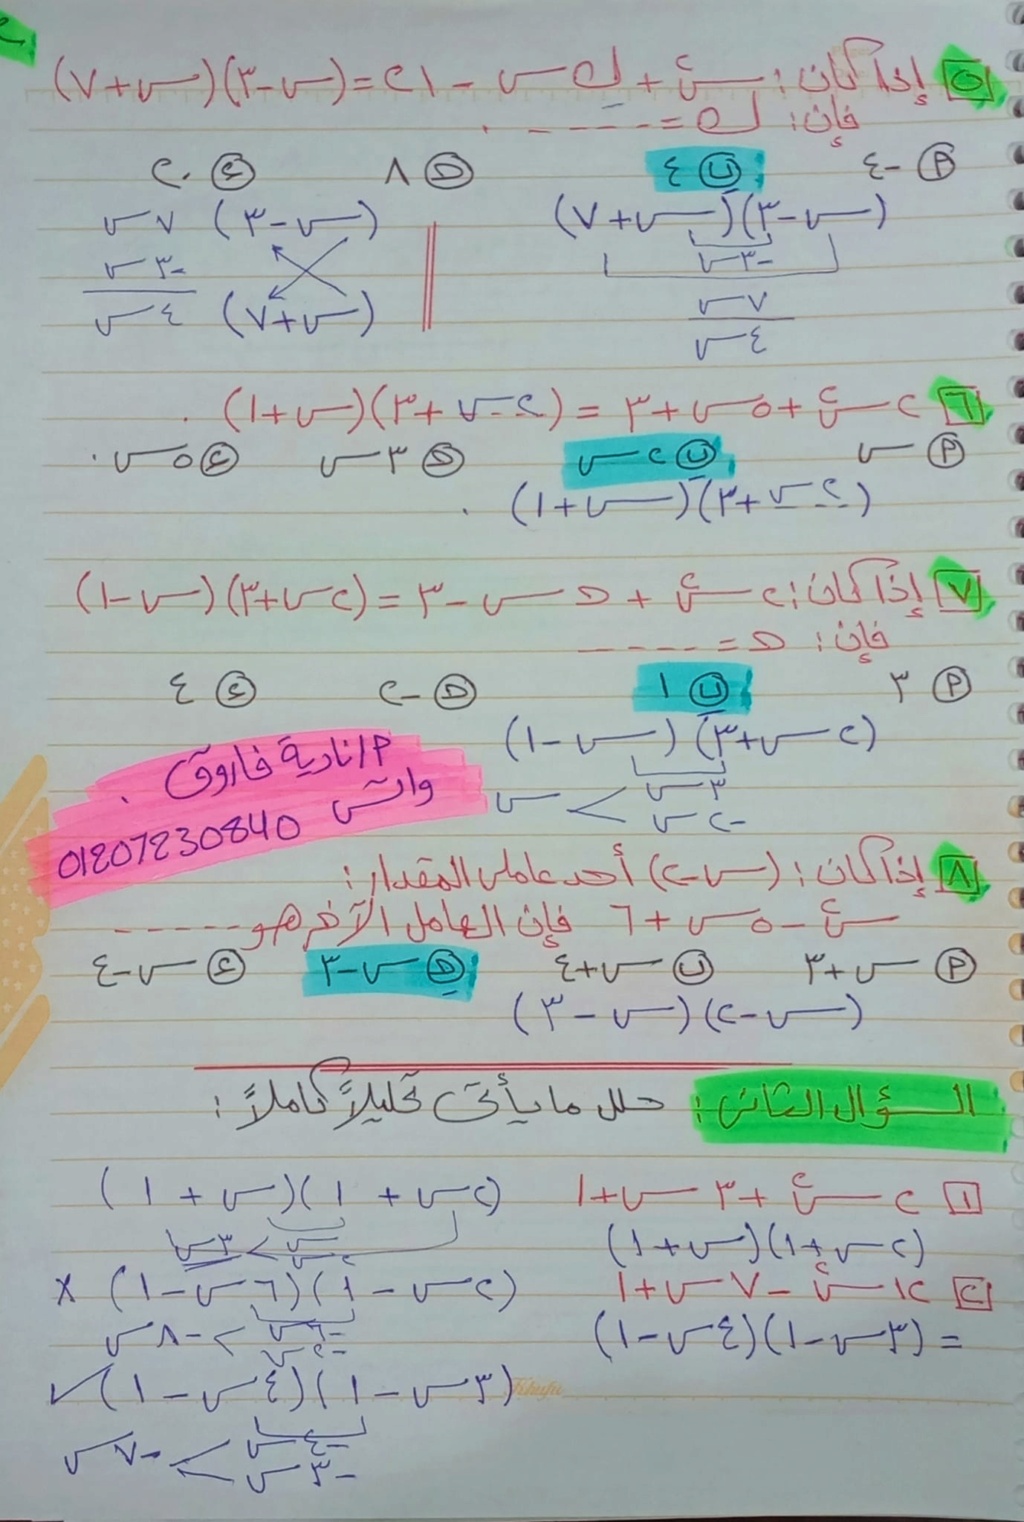 ٥ إذا كان: س٢ + ك س - ٢١ = (س-٣)(س+٧)
فإن: ك = -----.
أ -٤ ب ٤ ج ٨ د ٢٠
(س-٣)(س+٧) (س-٣) ٧س
-٣س -٣س
٧س (س+٧) ٤س
٤س
٦ ٢س٢ + ٥س + ٣ = (٢س+٣)(س+١) .
أ س ب ٢س ج ٣س د ٥س .
(٢س+٣)(س+١) .
٧ إذا كان: ٢س٢ + ج س - ٣ = (٢س+٣)(س-١)
فإن: ج = -----
أ ٣ ب ١ ج -٢ د ٤
(٢س+٣)(س-١)
٣س
-٢س
س
أ/ نادية فاروق .
واتس 01207230840
٨ إذا كان: (س-٢) أحد عاملى المقدار:
س٢ - ٥س + ٦ فإن العامل الآخر هو -----
أ س+٣ ب س+٤ ج س-٣ د س-٤
(س-٢)(س-٣)
السؤال الثانى: حلل ما يأتى تحليلاً كاملاً:
١ ٢س٢ + ٣س + ١ (٢س + ١)(س + ١)
(٢س+١)(س+١) س
٢س
٣س
٢ ١٢س٢ - ٧س + ١ (٢س - ١)(٦س - ١) ×
= (٣س-١)(٤س-١) -٦س
-٢س
-٨س
(٣س - ١)(٤س - ١) ✓
-٤س
-٣س
-٧س
Khufu